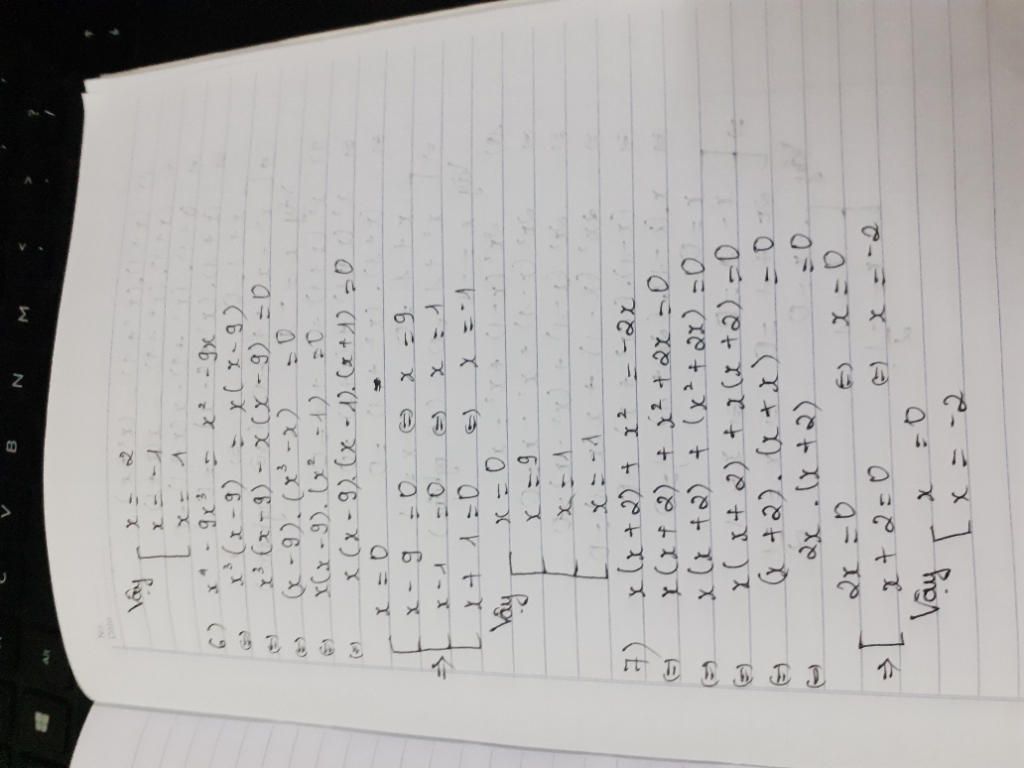 Vậy [ x = 2
x = -1
x = 1
6) x⁴ - 9x³ = x² - 9x
(=) x³(x-9) = x(x-9)
(=) x³(x-9) - x(x-9) = 0
(=) (x-9).(x³-x) = 0
(=) x(x-9).(x²-1) = 0
(=) x(x-9).(x-1).(x+1) = 0
x = 0
x - 9 = 0 (=) x = 9
=> [ x - 1 = 0 (=) x = 1
x + 1 = 0 (=) x = -1
Vậy [ x = 0
x = 9
x = 1
x = -1
7) x(x+2) + x² = -2x
(=) x(x+2) + x² + 2x = 0
(=) x(x+2) + (x²+2x) = 0
(=) x(x+2) + x(x+2) = 0
(=) (x+2).(x+x) = 0
(=) 2x.(x+2) = 0
2x = 0 (=) x = 0
=> [ x + 2 = 0 (=) x = -2
Vậy [ x = 0
x = -2